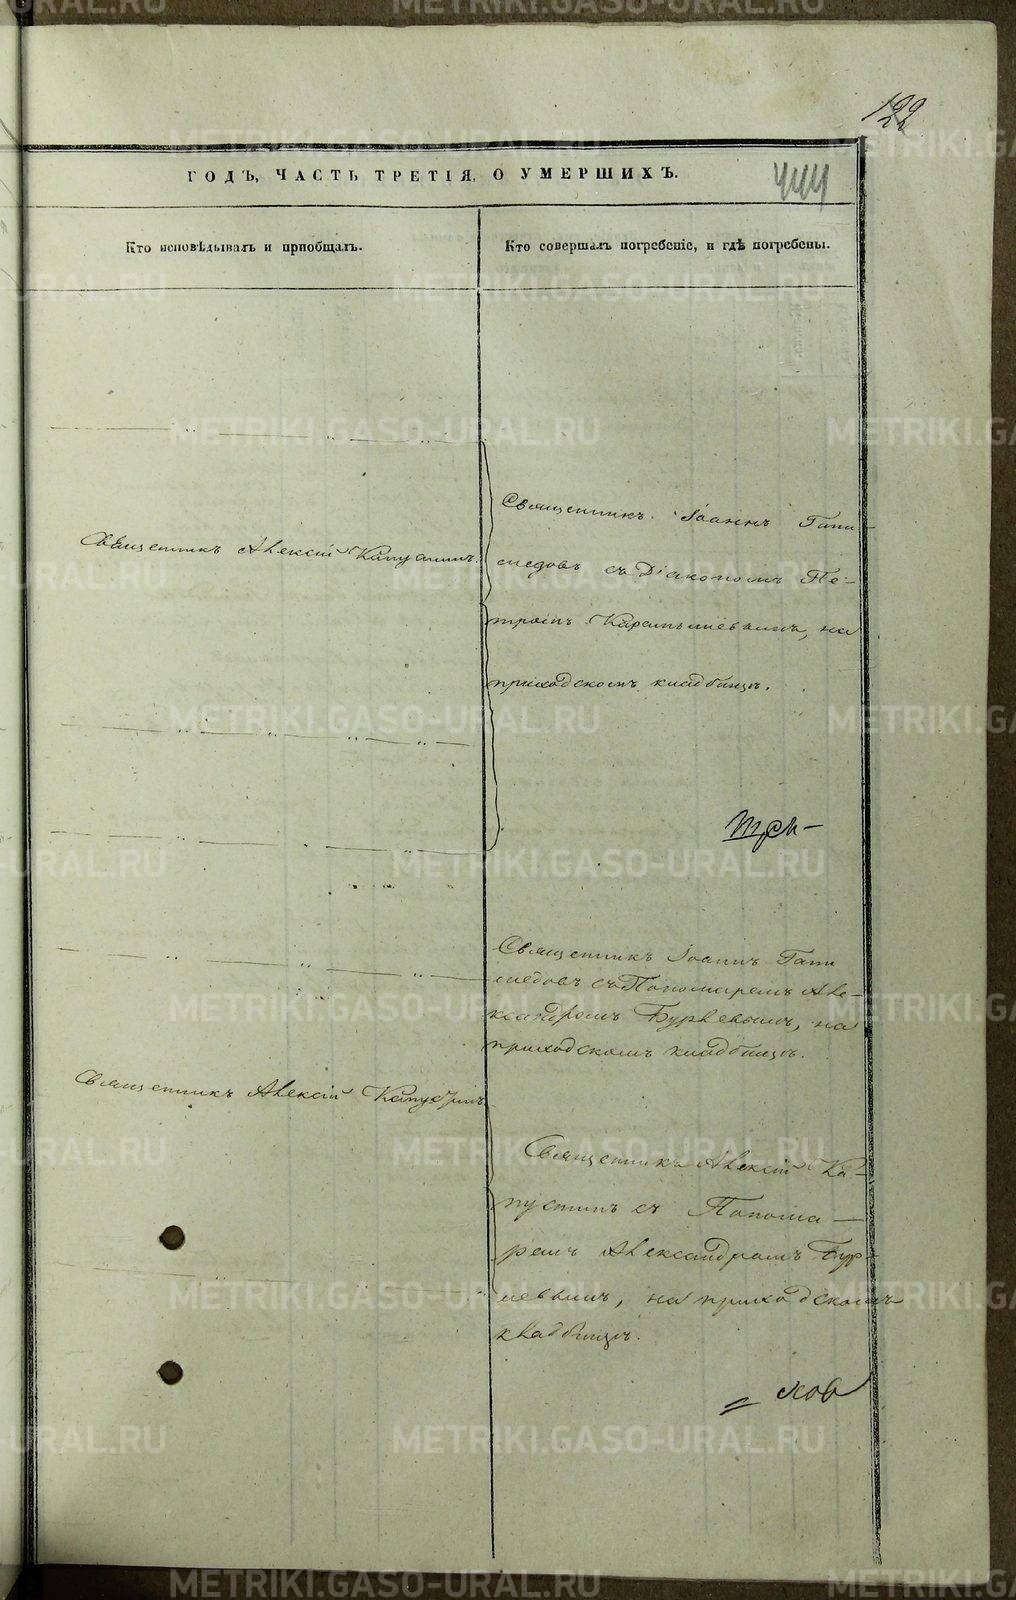 122
ГОДЪ, ЧАСТЬ ТРЕТІЯ, О УМЕРШИХЪ.
444
Кто исповѣдывалъ и пріобщалъ.
Кто совершалъ погребеніе, и гдѣ погребены.
Священникъ Алексій Капустинъ.
Священникъ Іоаннъ Гани-
медовъ съ Діакономъ Пе-
тромъ Карамышевымъ, на
приходскомъ кладбищѣ.
Священникъ Іоаннъ Гани
медовъ съ Пономаремъ Але-
ксандромъ Бурлевымъ, на
приходскомъ кладбищѣ.
Священникъ Алексій Капустинъ
Священникъ Алексій Ка-
пустинъ съ Понома-
ремъ Александромъ Бур-
левымъ, на приходскомъ
кладбищѣ.
ковъ
METRIKI.GASO-URAL.RU